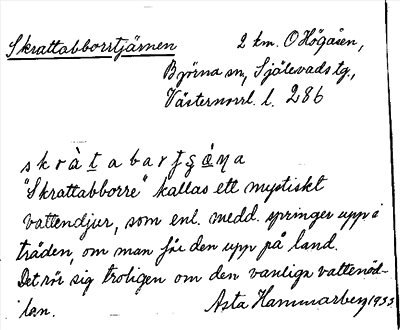 Skrattabborrtjärnen 2 km. O Högåsen,
Björna sn, Själevads tg.,
Västernorrl. l. 286
"Skrattabborre" kallas ett mystiskt
vattendjur, som enl. medd. springer upp i
träden, om man får den upp på land.
Det rör sig troligen om den vanliga vattenöd-
lan. Asta Hammarberg 1933